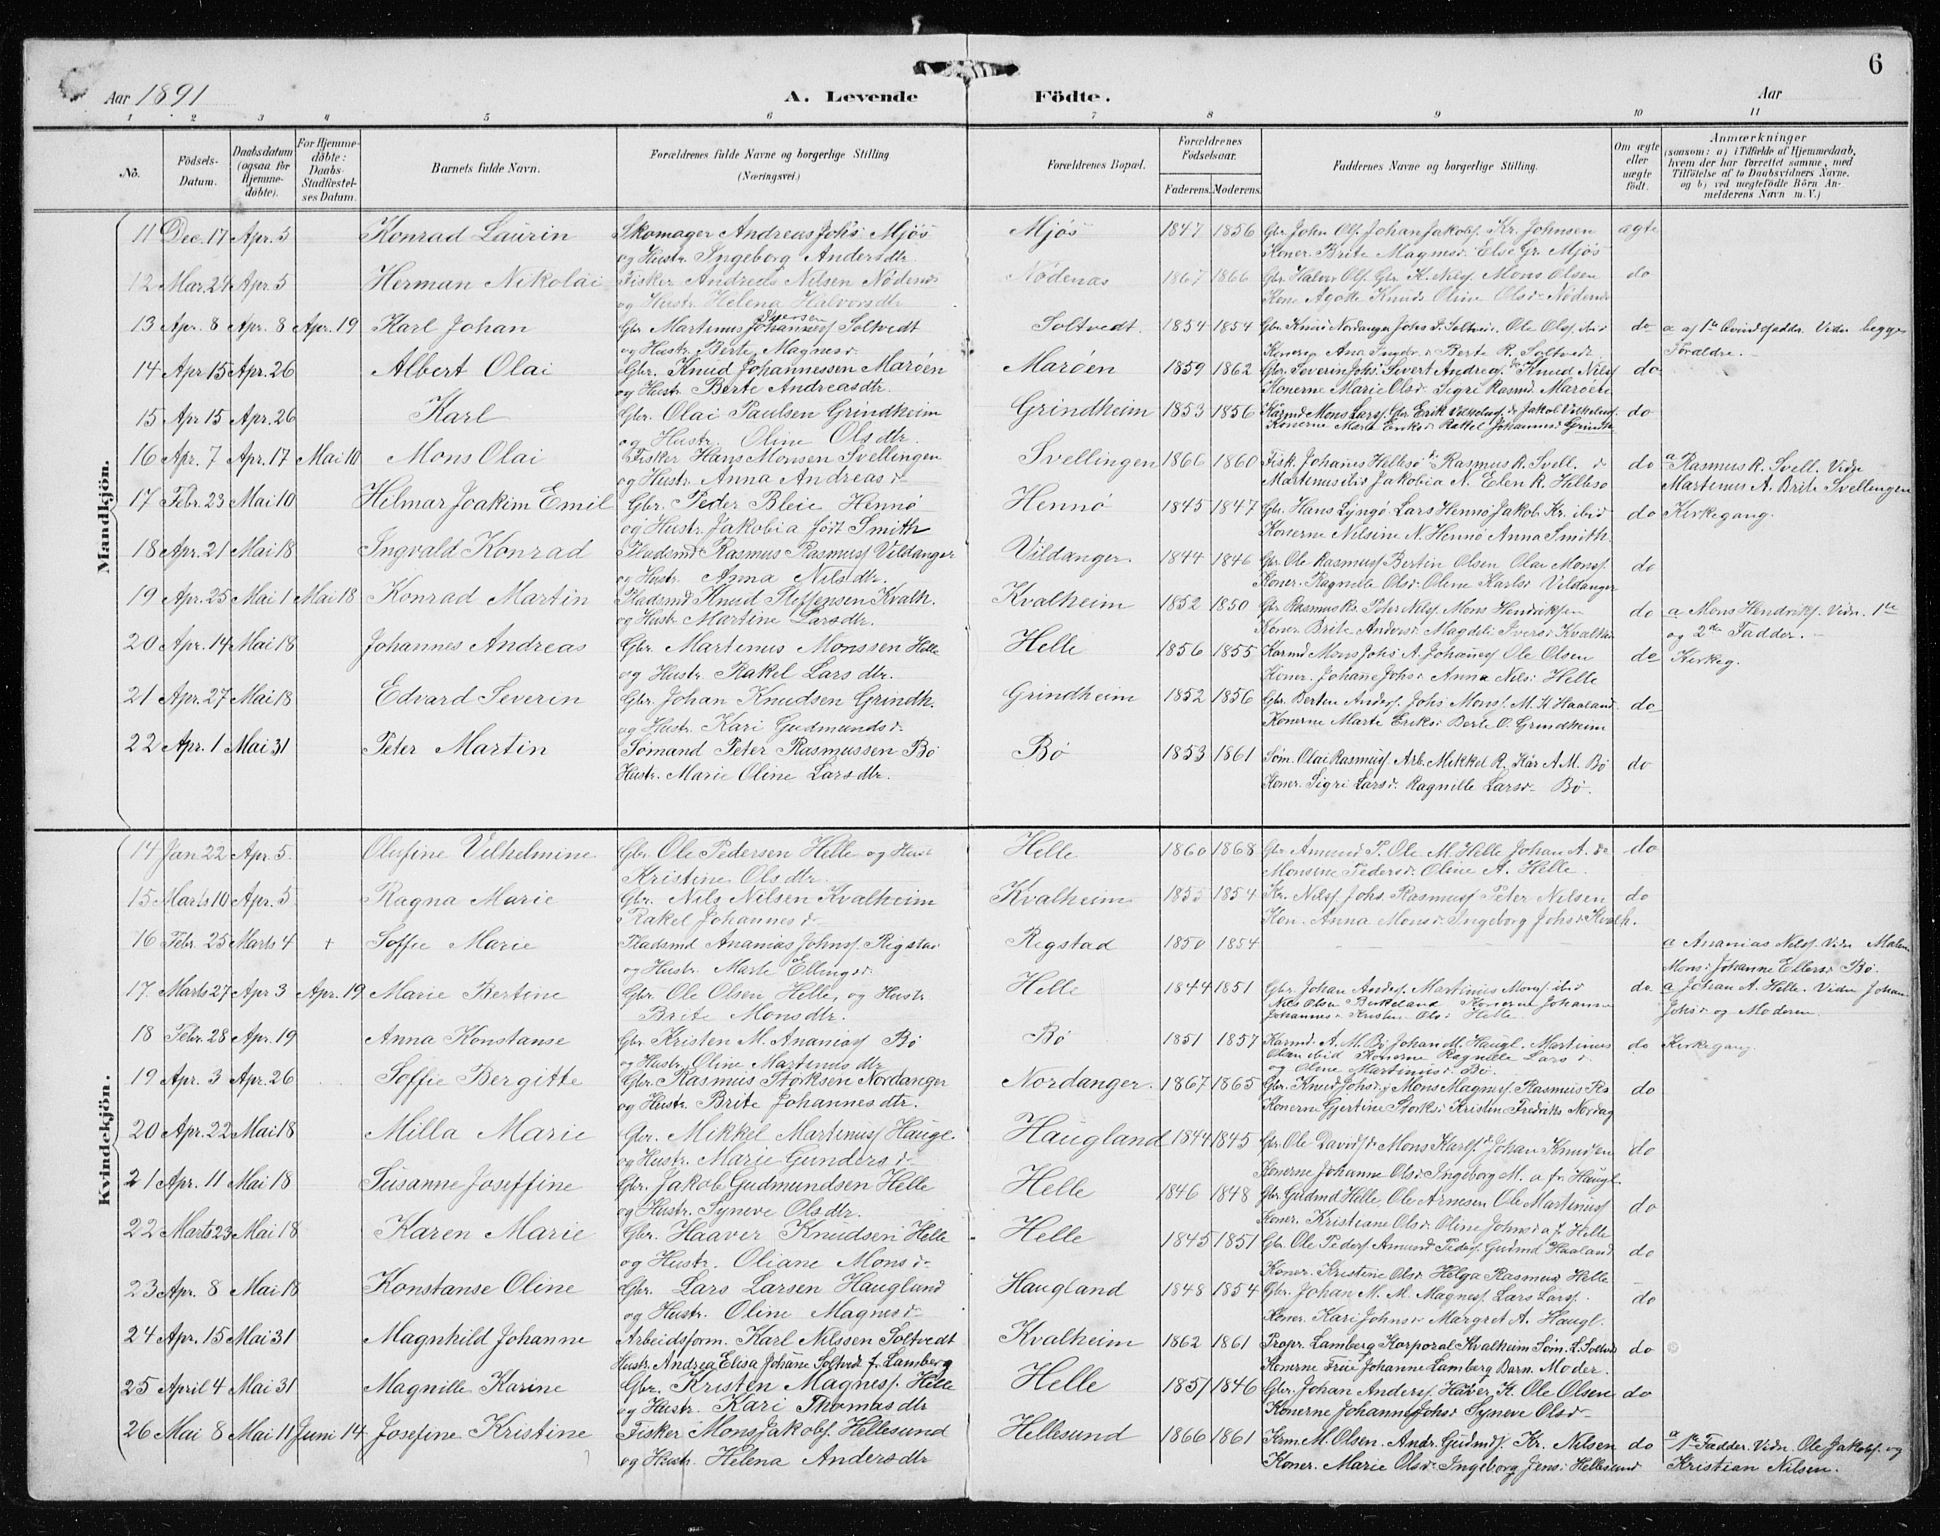 6
Aar 1891 A. Levende Födte. Aar
1 2 3 4 5 6 7 8 9 10 11
No. Födsels-Datum. Daabsdatum (ogsaa for Hjemme-döbte). For Hjemme-döbte: Daabs-Stadfæstel-ses Datum. Barnets fulde Navn. Forældrenes fulde Navne og borgerlige Stilling (Næringsvei.) Forældrenes Bopæl. Forældrenes Födselsaar. Faderens. Moderens. Faddernes Navne og borgerlige Stilling. Om ægte eller uægte födt. Anmærkninger (saasom: a) i Tilfælde af Hjemmedaab, hvem der har forrettet samme, med Tilföielse af to Daabsvidners Navne, og b) ved uægtefödte Börn An-melderens Navn m. V.)
Mandkjön.
11 Dec. 17 Apr. 5 Konrad Laurin Skomager Andreas Johs Mjøs Mjøs 1847 1856 Gbr John Ols. Johan Jakobs. Kr. Johnsen ægte
og Hustr. Ingeborg Andersdtr. Koner. Brite Magnesd. Else Gr. Mjøs
12 Mar. 24 Apr. 5 Herman Nikolai Fisker Andreas Nilsen Nødenes Nødenes 1867 1866 Gbr Halvor Ols. Gbr K. Nils. Mons Olsen do
og Hustr. Helena Halvorsdtr Kone Agate Knuds Oline Olsd. Nødenes
13 Apr. 8 Apr. 8 Apr. 19 Karl Johan Gbr Martinus Johannes Iversen Soltvedt Soltvedt. 1854 1854 Gbr. Knud Nordanger Johs S. Soltved. Ole Ols. ibid do a af 1te Qvindefadder. Vidn. begge
og Hustr. Berte Magnesd. Konerne Ana Berte R. Soltvedt Forældre.
14 Apr 15 Apr. 26 Albert Olai Gbr. Knud Johannessen Marøen Marøen 1859 1862 Gbr. Severin Johs Severt Andreas. Knud Nils do
og Hustr. Berte Andreasdtr. Konerne Marie Olsd. Sigri Rasmd. Marøen
15 Apr 15 Apr. 26 Karl Gbr. Olai Paulsen Grindheim Grindheim 1853 1856 Karmd Mons Lars. Gbr. Erik Vilhelms. Jakob Vilhelms. do
og Hustr. Oline Olsdtr. Konerne Marta Eriksd. Rakel Johannesd Grindh.
16 Apr. 7 Apr. 17 Mai 10 Mons Olai Fisker Hans Monsen Svellingen Svellingen 1866 1860 Fisk. Johanes Hellesø Rasmus R. Svell. do a Rasmus R. Svell. Vidn
og Hustr. Anna Andreasd. Martinus ibid Jakobia A. Elen R. Hellesø Martinus A. Brite Svellingen
17 Febr. 23 Mai 10 Hilmar Joakim Emil Gbr. Peder Bleie Hennø Hennø 1845 1847 Gbr. Hans Lyngø. Lars Hennø Jakob Kr. ibid do Kirkegang.
og Hustr. Jakobia født Smith Konerne Nilsine N. Hennø Anna Smith.
18 Apr. 21 Mai 18 Ingvald Konrad Pladsmd Rasmus Rasmus. Vildanger Vildanger 1844 1846 Gbr. Ole Rasmus. Bertin Olsen Olai Mons. do
og Hustr. Anna Nilsdtr. Koner. Ragnile Olsd. Oline Karlsd Vildanger
19 Apr. 25 Mai 1 Mai 18 Konrad Martin Pladsmd Knud Steffensen Kvalh. Kvalheim 1852 1850 Gbr Rasmus Peter Nils. Mons Hendriksen do a Mons Hendriks. Vidn. 1te
og Hustr Martine Larsdtr. Koner. Brite Andersd. Magdeli Iversd. Kvalh. og 2den Fadder.
20 Apr. 14 Mai 18 Johannes Andreas Gbr. Martinus Monssen Helle Helle 1856 1855 Karmd Mons Johs A. Johanes Ole Olsen do Kirkeg.
og Hustr. Rakel Larsdtr. Koner. Johane Johsd. Anna Nilsd. Helle
21 Apr. 27 Mai 18 Edvard Severin Gbr. Johan Knudsen Grindh. Grindheim 1852 1856 Gbr Berten Anders. Johs Mons. M. K. Haaland do
og Hustr. Kari Gudmundsd. Konerne Marti Eriksd. Berte O. Grindheim
22 Apr. 1 Mai 31 Peter Martin Sømand Peter Rasmussen Bø Bø 1853 1861 Søm. Olai Rasmus. Arb. Mikkel R. Kår A. M. Bø do
Hustr. Marie Oline Larsdtr. Koner. Sigri Larsd. Ragnille Larsd. Bø.
Kvindekjön.
14 Jan 22 Apr. 5 Olufine Vilhelmine Gbr. Ole Pedersen Helle og Hust Helle 1860 1868 Gbr Amund P. Ole M. Helle Johan A. do do
Kristine Olsdtr. Monsine Pedersd. Oline A. Helle.
15 Marts 10 Apr. 5 Ragna Marie Gbr. Nils Nilsen Kvalheim Kvalheim 1855 1854 Kr. Nils. Johs. Rasmus. Peter Nilsen do
Rakel Johannesd. Kon. Anna Monsd. Ingeborg Johsd. Kvalh.
16 Febr. 25 Marts 4 + Soffie Marie Pladsmd Ananias Johns. Rigstad Rigstad 1850 1854 a Ananias Nils. Vidn. Malene
og Hustr. Marte Ellingsd. Monsd. Johanne Ellersd. Bø.
17. Marts 27 Apr 3 Apr. 19 Marie Bertine Gbr. Ole Olsen Helle, og Hustr Helle 1844 1851 Gbr. Johan Anders. Martinus Mons. ibid do a Johan A. Helle. Vidn Johan
Brite Monsdtr. Nils Olsen Birkeland Konerne Johanne Johannesd. Kristen Olsd. Helle. Johsd. og Moderen.
18 Febr. 28 Apr. 19 Anna Konstanse Gbr. Kristen M. Ananias Bø Bø 1851 1857 Karmd. A. M. Bø Johan M. Haugl. Martinus do Kirkegang
og Hustr. Oline Martinusdtr Olsn ibid Konerne Ragnille Larsd. og Oline Martinusd. Bø.
19 Apr. 3 Apr. 26 Soffie Bergitte Gbr. Rasmus Storksen Nordanger Nordanger. 1867 1865 Gbr. Knud Johs. Mons Magnus. Rasmus do
og Hustr. Brite Johannesdtr. Konerne Gjertine Storksd. Kristen Fredriks Nordag
20 Apr. 22 Mai 18 Milla Marie Gbr. Mikkel Martinus. Haugl. Haugland 1844 1845 Gbr. Ole Davids. Mons Karls. Johan Knudsen do
og Hustr. Marie Gundersd. Konerne Johanne Olsd. Ingeborg M. a fr. Haugl.
21 Apr. 11 Mai 18 Susanne Joseffine Gbr. Jakob Gudmundsen Helle Helle 1846 1848 Gbr. Gudmd Helle Ole Arnesen Ole Martinus. do
og Hustr. Syneve Olsdtr. Koner. Kristiane Olsd. Oline Johnsd. a f. Helle
22 Marts 23 Mai 18 Karen Marie Gbr. Haaver Knudsen Helle Helle 1845 1851 Gbr. Ole Peders. Amund Peders. Gudmd Haaland do
og Hustr. Oliane Monsd. Koner. Kristine Olsd. Helga Rasmusd. Helle
23 Apr. 8 Mai 18 Konstanse Oline Gbr. Lars Larsen Haugland Haugland 1848 1854 Gbr. Johan M. M. Magnes. Lars Lars. do
og Hustr. Oline Magnesd. Koner. Kari Johnsd. Margret A. Haugl.
24 Apr. 15 Mai 31 Magnhild Johanne Arbeidsform. Karl Nilssen Soltvedt Kvalheim 1862 1861 Propr. Lamberg Korporal Kvalheim Søm. L. Soltved do
Hustr. Andrea Elisa Johane Soltvedt f. Lamberg Konerne Frue Johanne Lamberg Barn. Moder.
25 April 4 Mai 31 Magnille Karine Gbr. Kristen Magnes. Helle Helle 1851 1846 Gbr. Johan Anders. Haver K. Ole Olsen do
og Hustr. Kari Thomasdtr Konerne Johanne Johsd. Syneve Olsd.
26 Mai 8 Mai 11 Juni 14 Josefine Kristine Fisker Mons Jakobs. Hellesund Hellesund 1866 1861 Krm. M. Olsen. Andr. Gudmds. Kr. Nilsen do a 1te Fadder. Vidn. Ole Jakobs. og
og Hustr. Helena Andersdtr Koner. Marie Olsd. Ingeborg Jensd. Hellesund Kristian Nilsen.